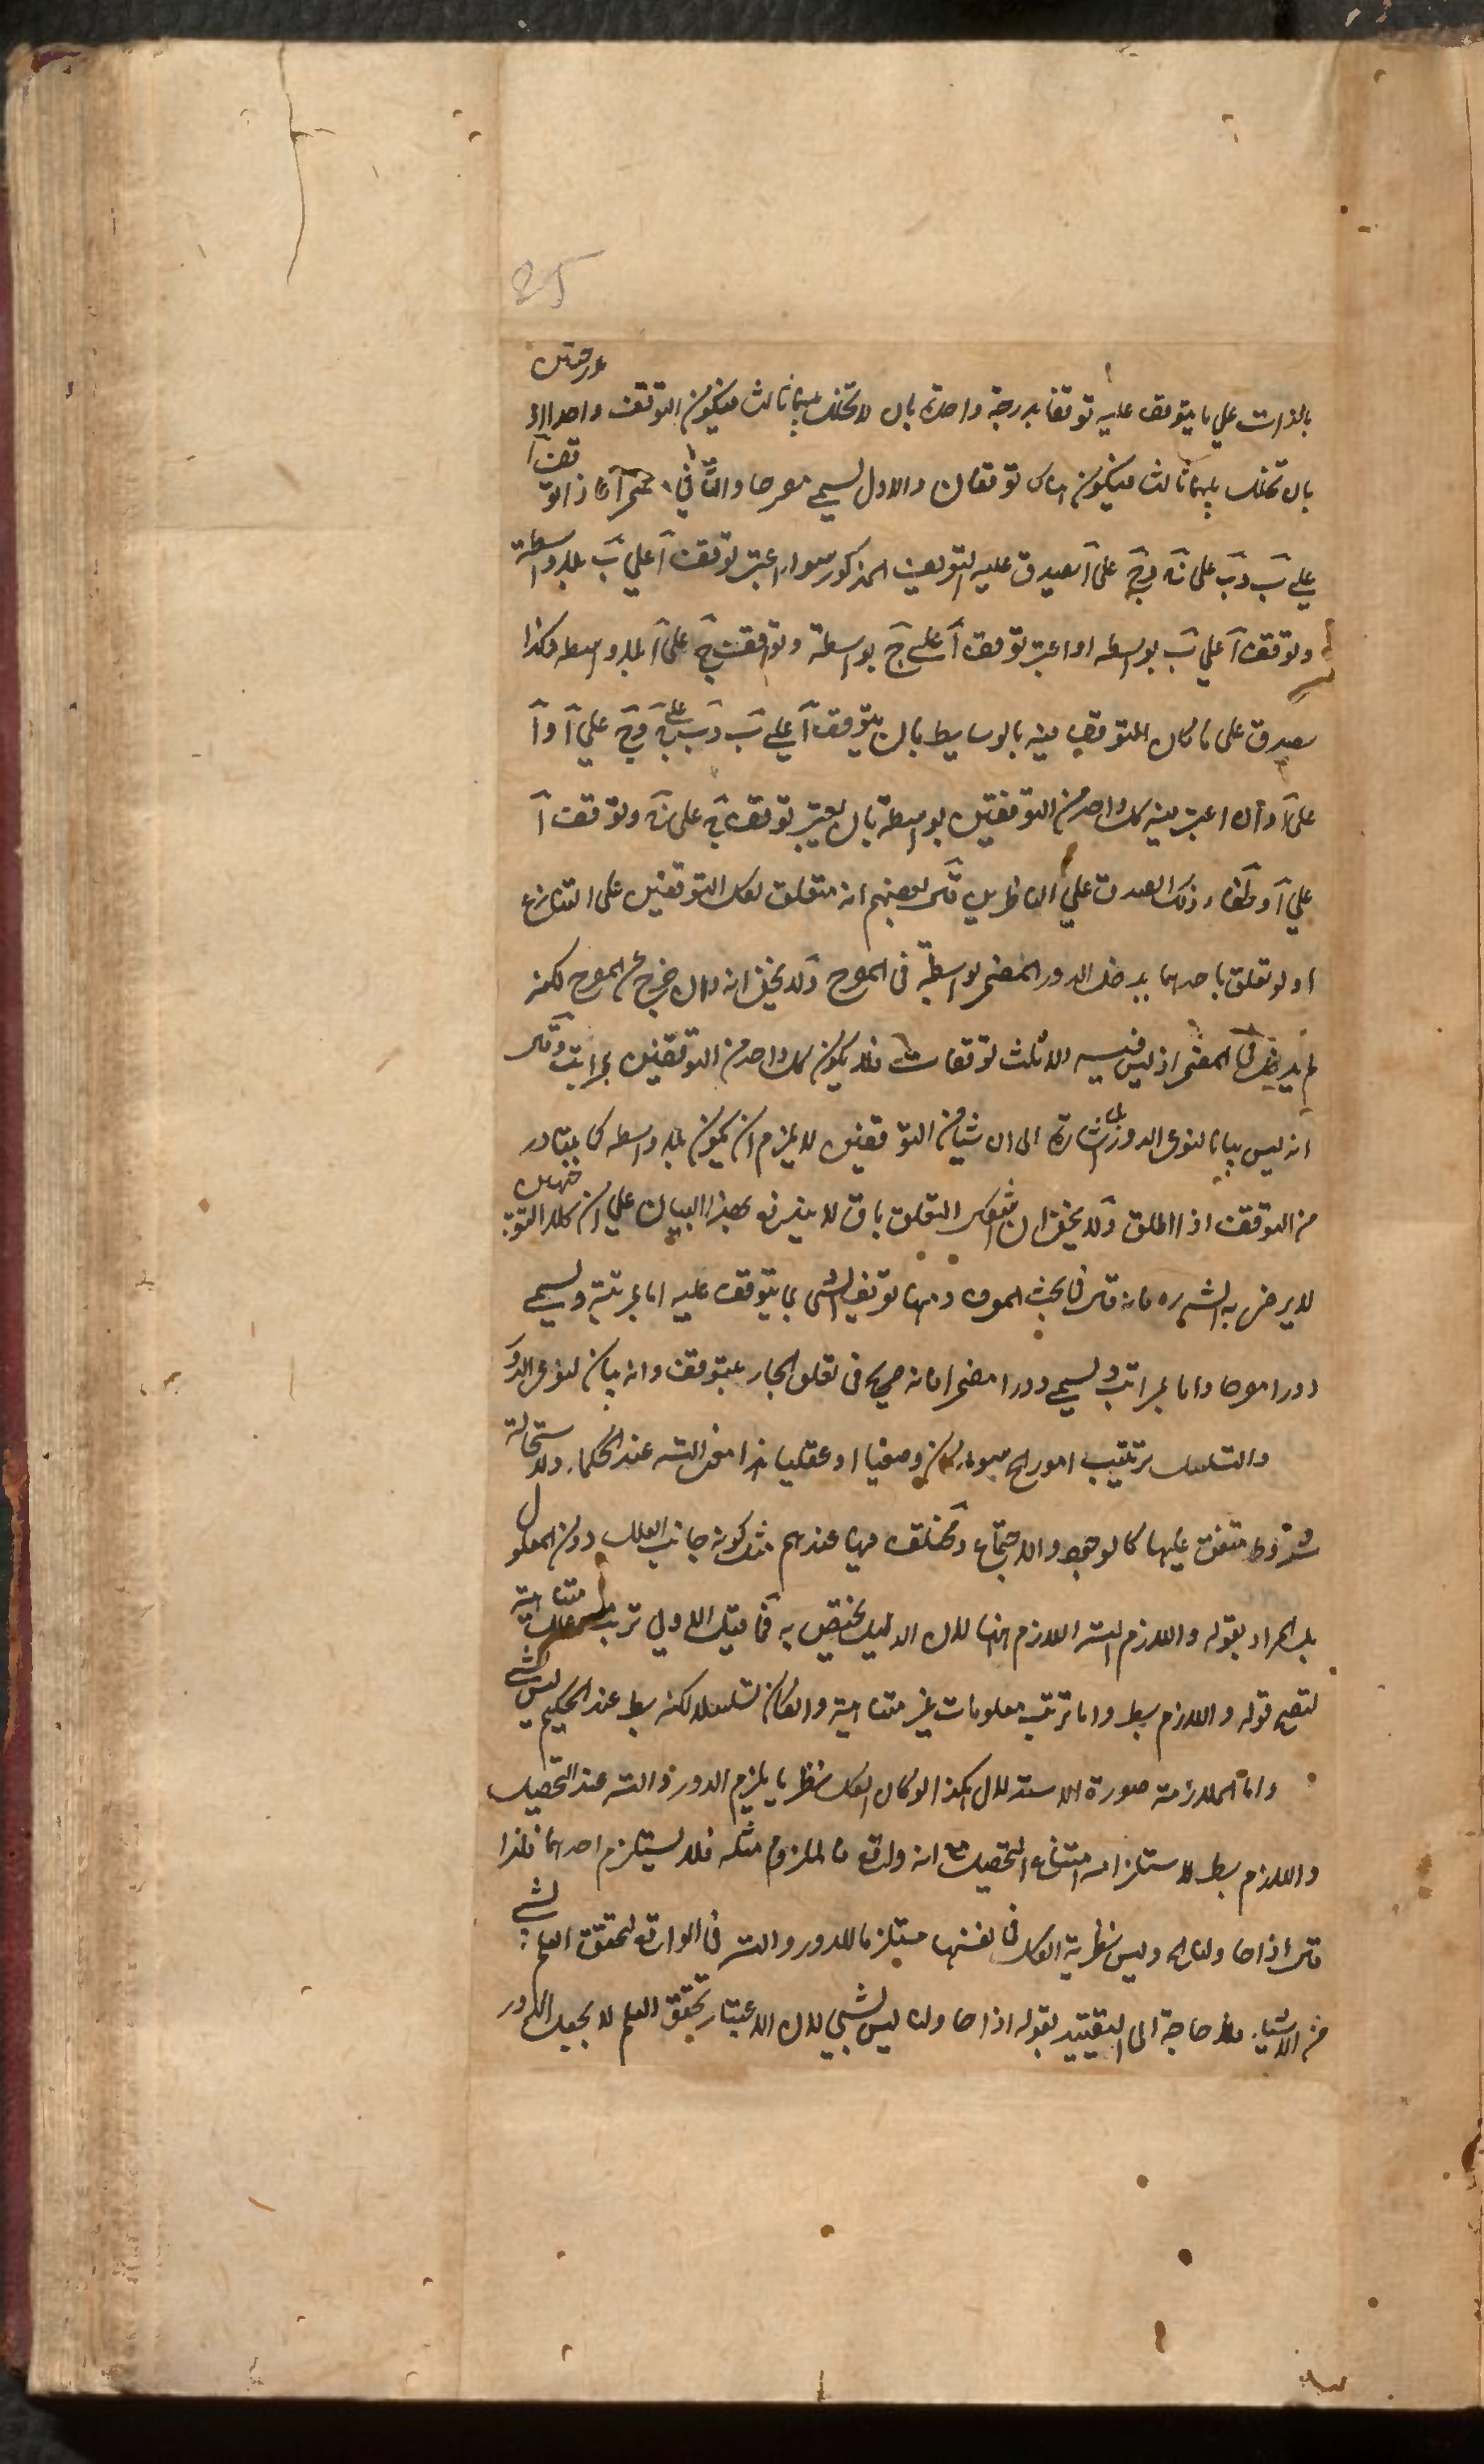 25
بالذات علي ما يتوقف عليه توقفا بدرجة واحدة بان لا تخلل بينهما ثالث فيكون التوقف واحدا او درجتين
بان تخلل بينهما ثالث فيكون هناك توقفان والاول يسمى مصرحا والثاني مضمرا فاذا توقف آ
علي ب و ب على ج و ج على آ يصدق عليه التعريف المذكور سواء اعتبر توقف آ علي ب بلا واسطة
وتوقف آ علي ب بواسطه او اعتبر توقف آ على ج بواسطة وتوقف ج على آ بلا واسطه وكذا
يصدق على ما كان التوقف فيه بالوسايط بان يتوقف آ علي ب و ب علي ج و ج علي آ و آ
على آ وان اعتبر فيه كل واحد من التوقفين بواسطة بان يعتبر توقف على وتوقف آ
علي آ وخفاء ذلك الصدق علي الناظرين قال بعضهم انه متعلق بكل التوقفين على التنازع
اذ لو تعلق باحدهما يدخل الدور المضمر بواسطة فى المصرح ولا يخفى انه وان خرج عن المصرح لكنه
لم يدخل فى المضمر اذ ليس فيه الا ثلث توقفات فلا يكون كل واحد من التوقفين بمراتب وقال
انه ليس بيانا لنوعى الدور بل اشارة الى ان شيئا من التوقفين لا يلزم ان يكون بلا واسطه كما يتبادر
من التوقف اذا اطلق ولا يخفى ان التعلق باق لا يندفع بهذا البيان علي ان كلا التوجيهين
لا يرضى به الش ره فانه قال فى بحث المعرف ومنها توقيف الشى بما يتوقف عليه اما بمرتبة ويسمى
دورا مصرحا واما بمراتب ويسمى دورا مضمرا فانه صريح فى تعلق الجار بيتوقف وانه بيان لنوعى الدور
والتسلسل ترتيب امور الخ سواء كان وضعيا او عقليا هذا معنى التسه عند الحكماء ولاستحالته
شروط متفق عليها كالوجود والاجتماع ومختلف فيها عندهم مثل كونه جانب العلل دون المعلول
بل المراد بقوله واللازم التسه اللازم ههنا لان الدليل يختص به فما قيل الاولي ترتب علل متناهية
ليصح قوله واللازم بط واما ترتب معلومات غير متناهية وان كان تسلسلا لكنه بط عند الحكيم ليس بشي
واما الملازمة صورة الاستدلال هكذا لو كان الكل نظريا يلزم الدور والتسه عند التحصيل
واللازم بط لاستلزامه امتناع التحصيل مع انه واقع فالملزوم مثله فلا يستلزم احدهما فلذا
قال اذا حاولنا الخ وليس نظرية الكل فى نفسها مستلزما للدور والتسه فى الواقع لتحقق العلم بشي
من الاشياء فلا حاجة الى التقييد بقوله اذا حاولنا ليس بشي لان الاعتبار تحقق العلم لا يجعل الدور